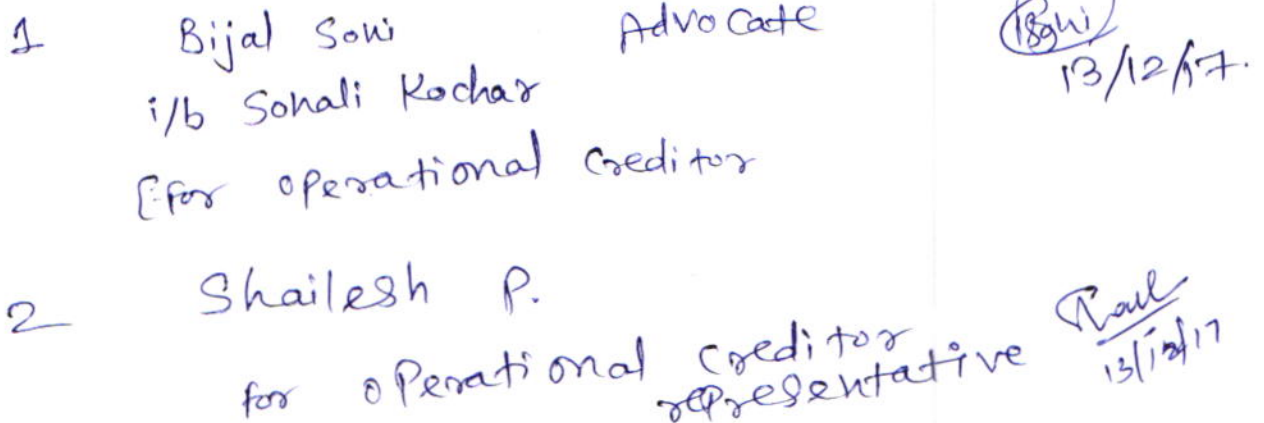 1 Bijal Soni Advocate Bsoni
i/b Sonali Kochar 13/12/17.
[for operational Creditor
2 Shailesh P.
for operational Creditor
representative 13/12/17